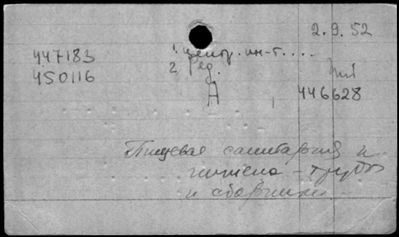 2.9.52
447183 1. центр. ин-т....
450116 2. Ред.
А 446628
Пищевая санитария и
гигиена - труды
и сборники